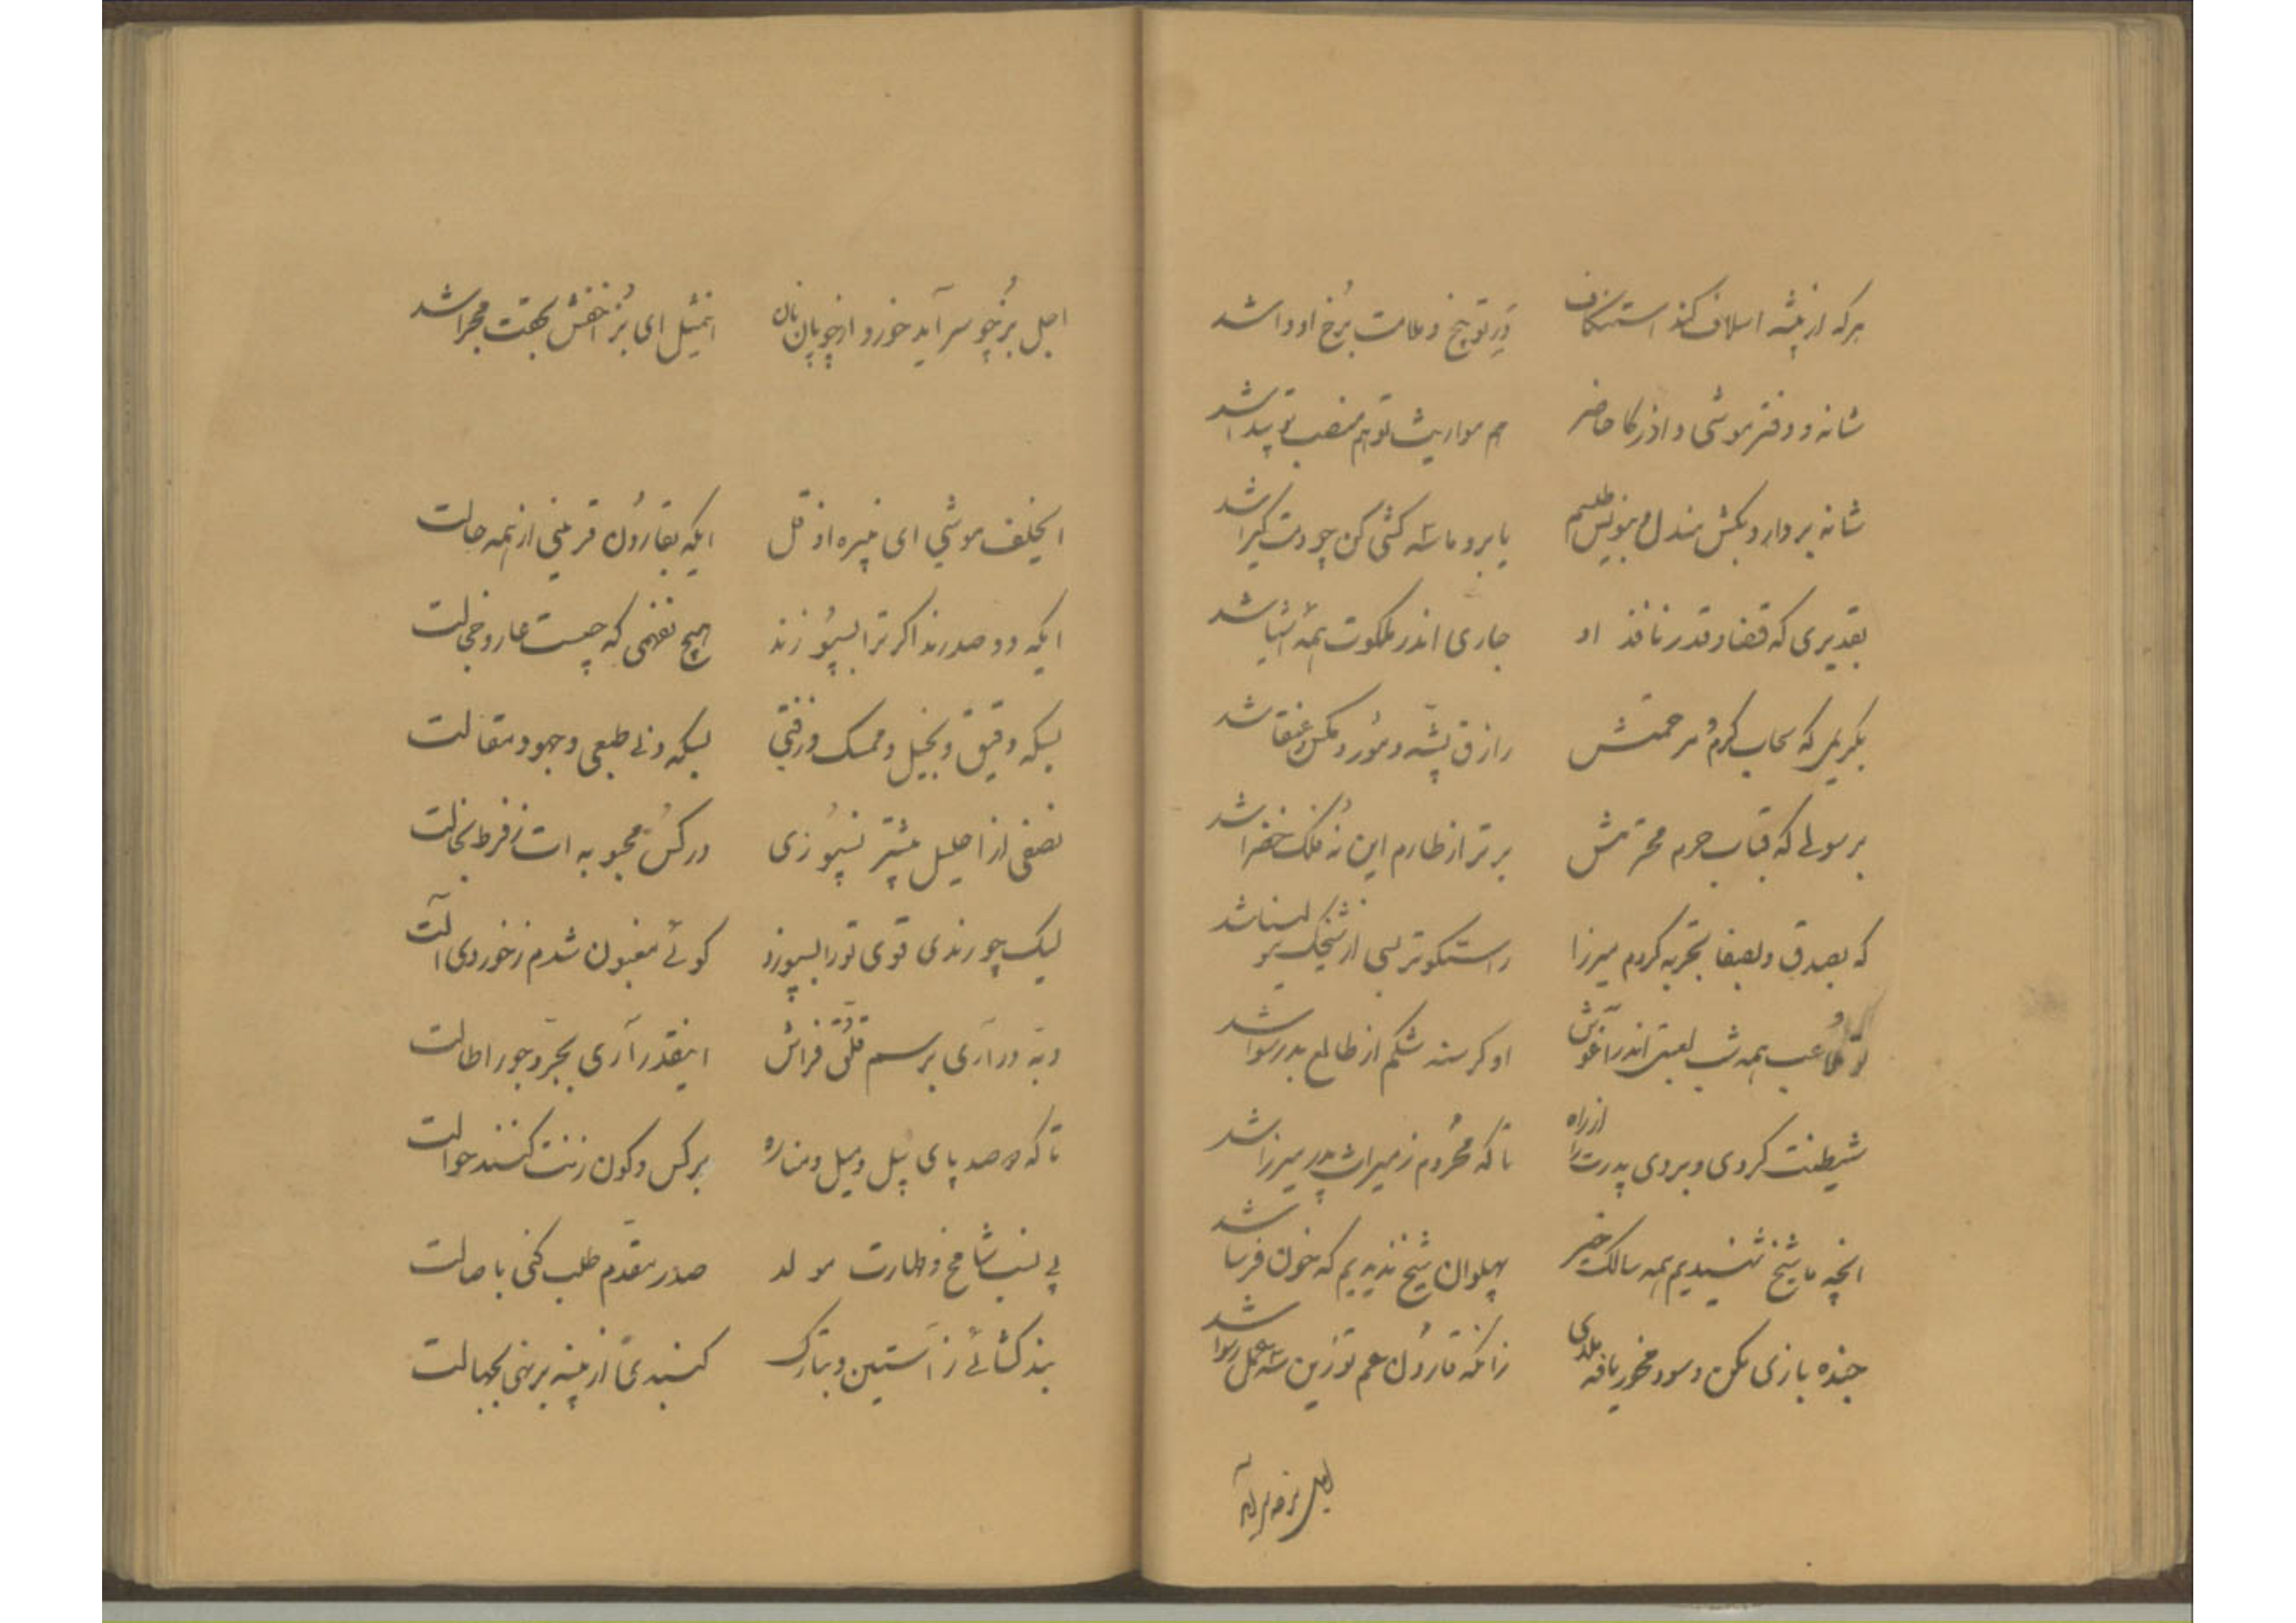 هرکه از پیشه اسلاف کند استنکاف در توبیخ و ملامت برخ او وا شد
شانه و دفتر موشی و اذرکا حاضر هم مواریث تو هم منصب تو پیدا شد
شانه بردار و بکش مندل و بنویس طلسم یا برو ماسه کشی کن چو دمت گیرا شد
بقدیری که قضا و قدر نافذ او جاری اندر ملکوت همه اشیا شد
بکریمی که سحاب کرم و مرحمتش رازق پشه و مور و مکس و عنقا شد
برسولی که قباب حرم محترمش برتر از طارم این نه فلک خضرا شد
که بصدق و بصفا تجربه کردم میرزا راستگوتر بسی از شیخک
تو ملاعب همه شب لعبتی اندر آغوش او گرسنه شکم از طالع بد رسوا شد
شیطنت کردی و بردی پدرت را از راه تا که محروم ز میراث پدر میرزا شد
آنچه ما شیخ شنیدیم همه سالک خیر پهلوان شیخ ندیدیم که خون فرسا شد
جنده بازی مکن و سود مخور یافه ملدی زانکه قارون عم تو زین سه عمل رسوا شد
اجل بز چو سر آید
اجل بز چو سر آید خورد از چوپان نان اینمثل ای بز اخفش بجهت مجرا شد
ایخلف موشی ای نبیره اوقل ایکه بقارون قرینی از همه حالت
ایکه دو صد رند اگر ترا بسپوزند هیچ نفهمی که چیست عار و خجالت
بسکه دقیق و بخیل و ممسک و زفتی بسکه دنی طبعی و جهود مقالت
نصفی از احلیل بیشتر نسپوزی در کس محبوبه ات ز فرط بخالت
لیک چو رندی قوی تو را بسپوزد گوئی مغبون شدم ز خوردی آلت
دبه در آری برسم قلتق فراش اینقدر آری بجر و جور اطالت
تا که دو صد پای پیل و میل و مناره بر کس و کون زنت کنند حوالت
بی نسب شامخ و طهارت مولد صدر مقدم طلب کنی باصالت
بند گشائی ز آستین و بتارک گنبدی از پنبه بر نهی بجهالت